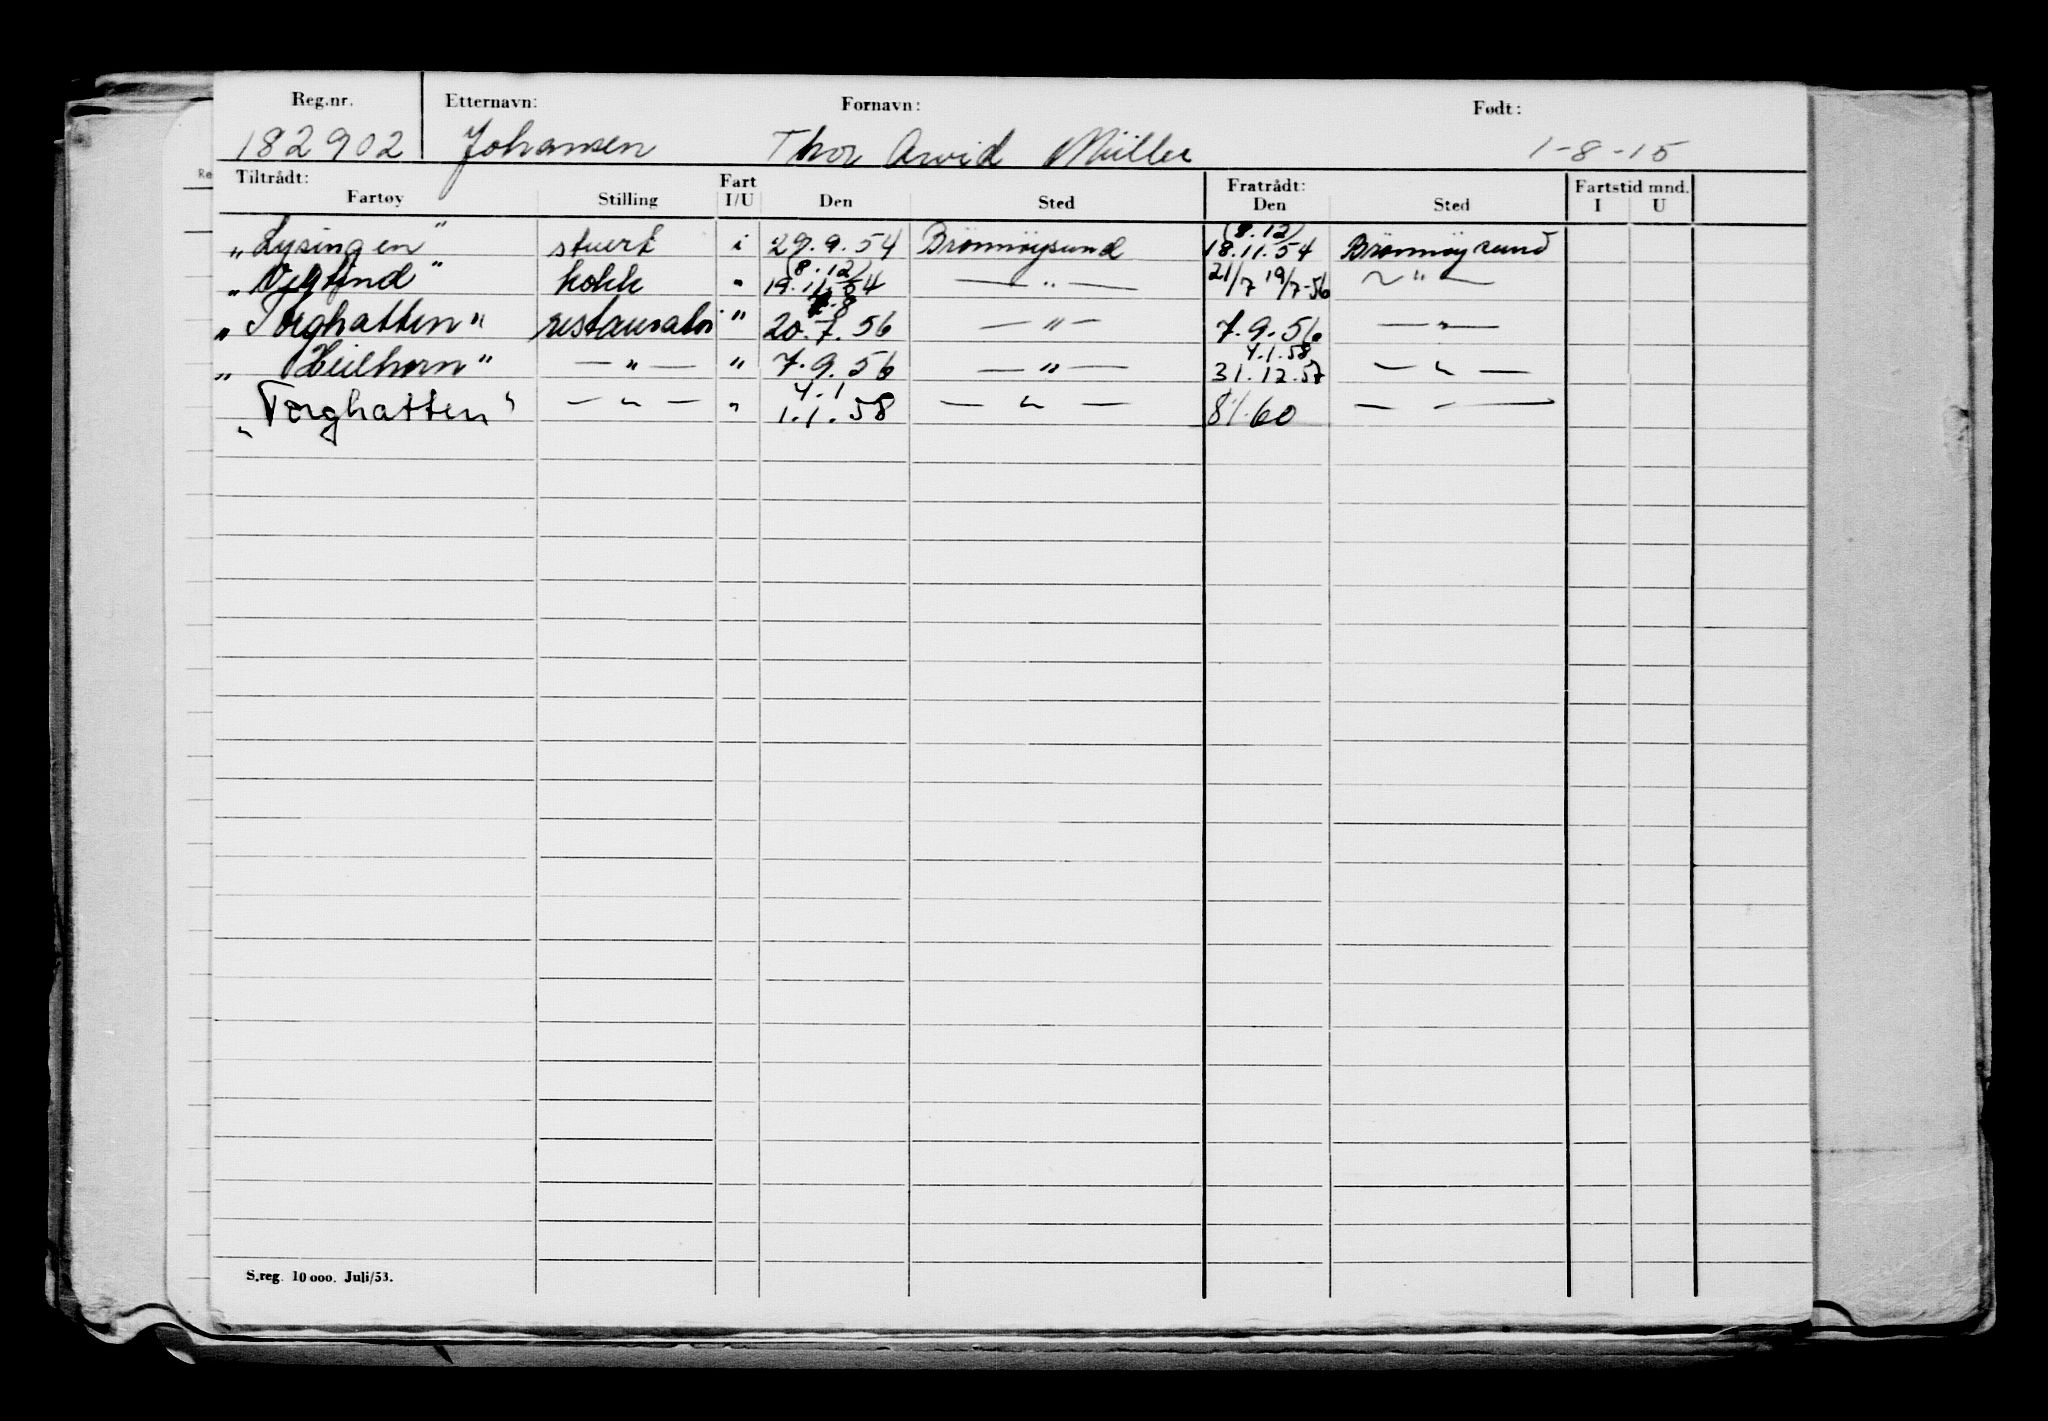 Reg.nr. Etternavn: Fornavn: Født:
182902 Johansen Thor Arvid Müller 1-8-15
Tiltrådt: Fart Fratrådt: Fartstid mnd.
Fartøy Stilling I/U Den Sted Den Sted I U
(8.12)
"Lysingen" stuert i 29.9.54 Brønnøysund 18.11.54 Brønnøysund
(8.12)
"Vegtind" kokk " 19.11.54 — " — 21/7 19/7-56 — " —
7.8
"Torghatten" restauratør " 20.7.56 — " — 7.9.56 — " —
4.1.58
"Heilhorn" — " — " 7.9.56 — " — 31.12.57 — " —
4.1
"Torghatten" — " — " 1.1.58 — " — 8/1.60 — " —
S.reg. 10 000. Juli/53.